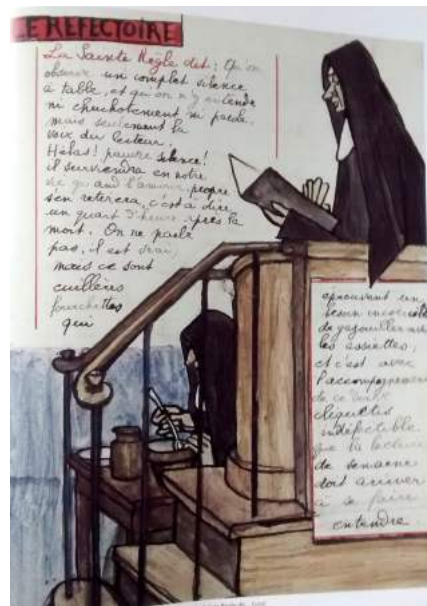 LE REFECTOIRE
La Sainte Règle dit: Qu'on
observe un complet silence
à table, et qu'on n'y entende
ni chuchotement ni parole,
mais seulement la
voix du lecteur.
Hélas! pauvre silence!
il surviendra en notre
vie quand l'amour-propre
s'en retirera, c'est à dire
un quart d'heure après la
mort. On ne parle
pas, il est vrai,
mais ce sont
cuillères
fourchettes
qui
éprouvant un
besoin
de gazouiller avec
les assiettes,
et c'est avec
l'accompagnement
de ce
cliquetis
indéfectible
que la lectrice
de semaine
doit arriver
à se faire
entendre